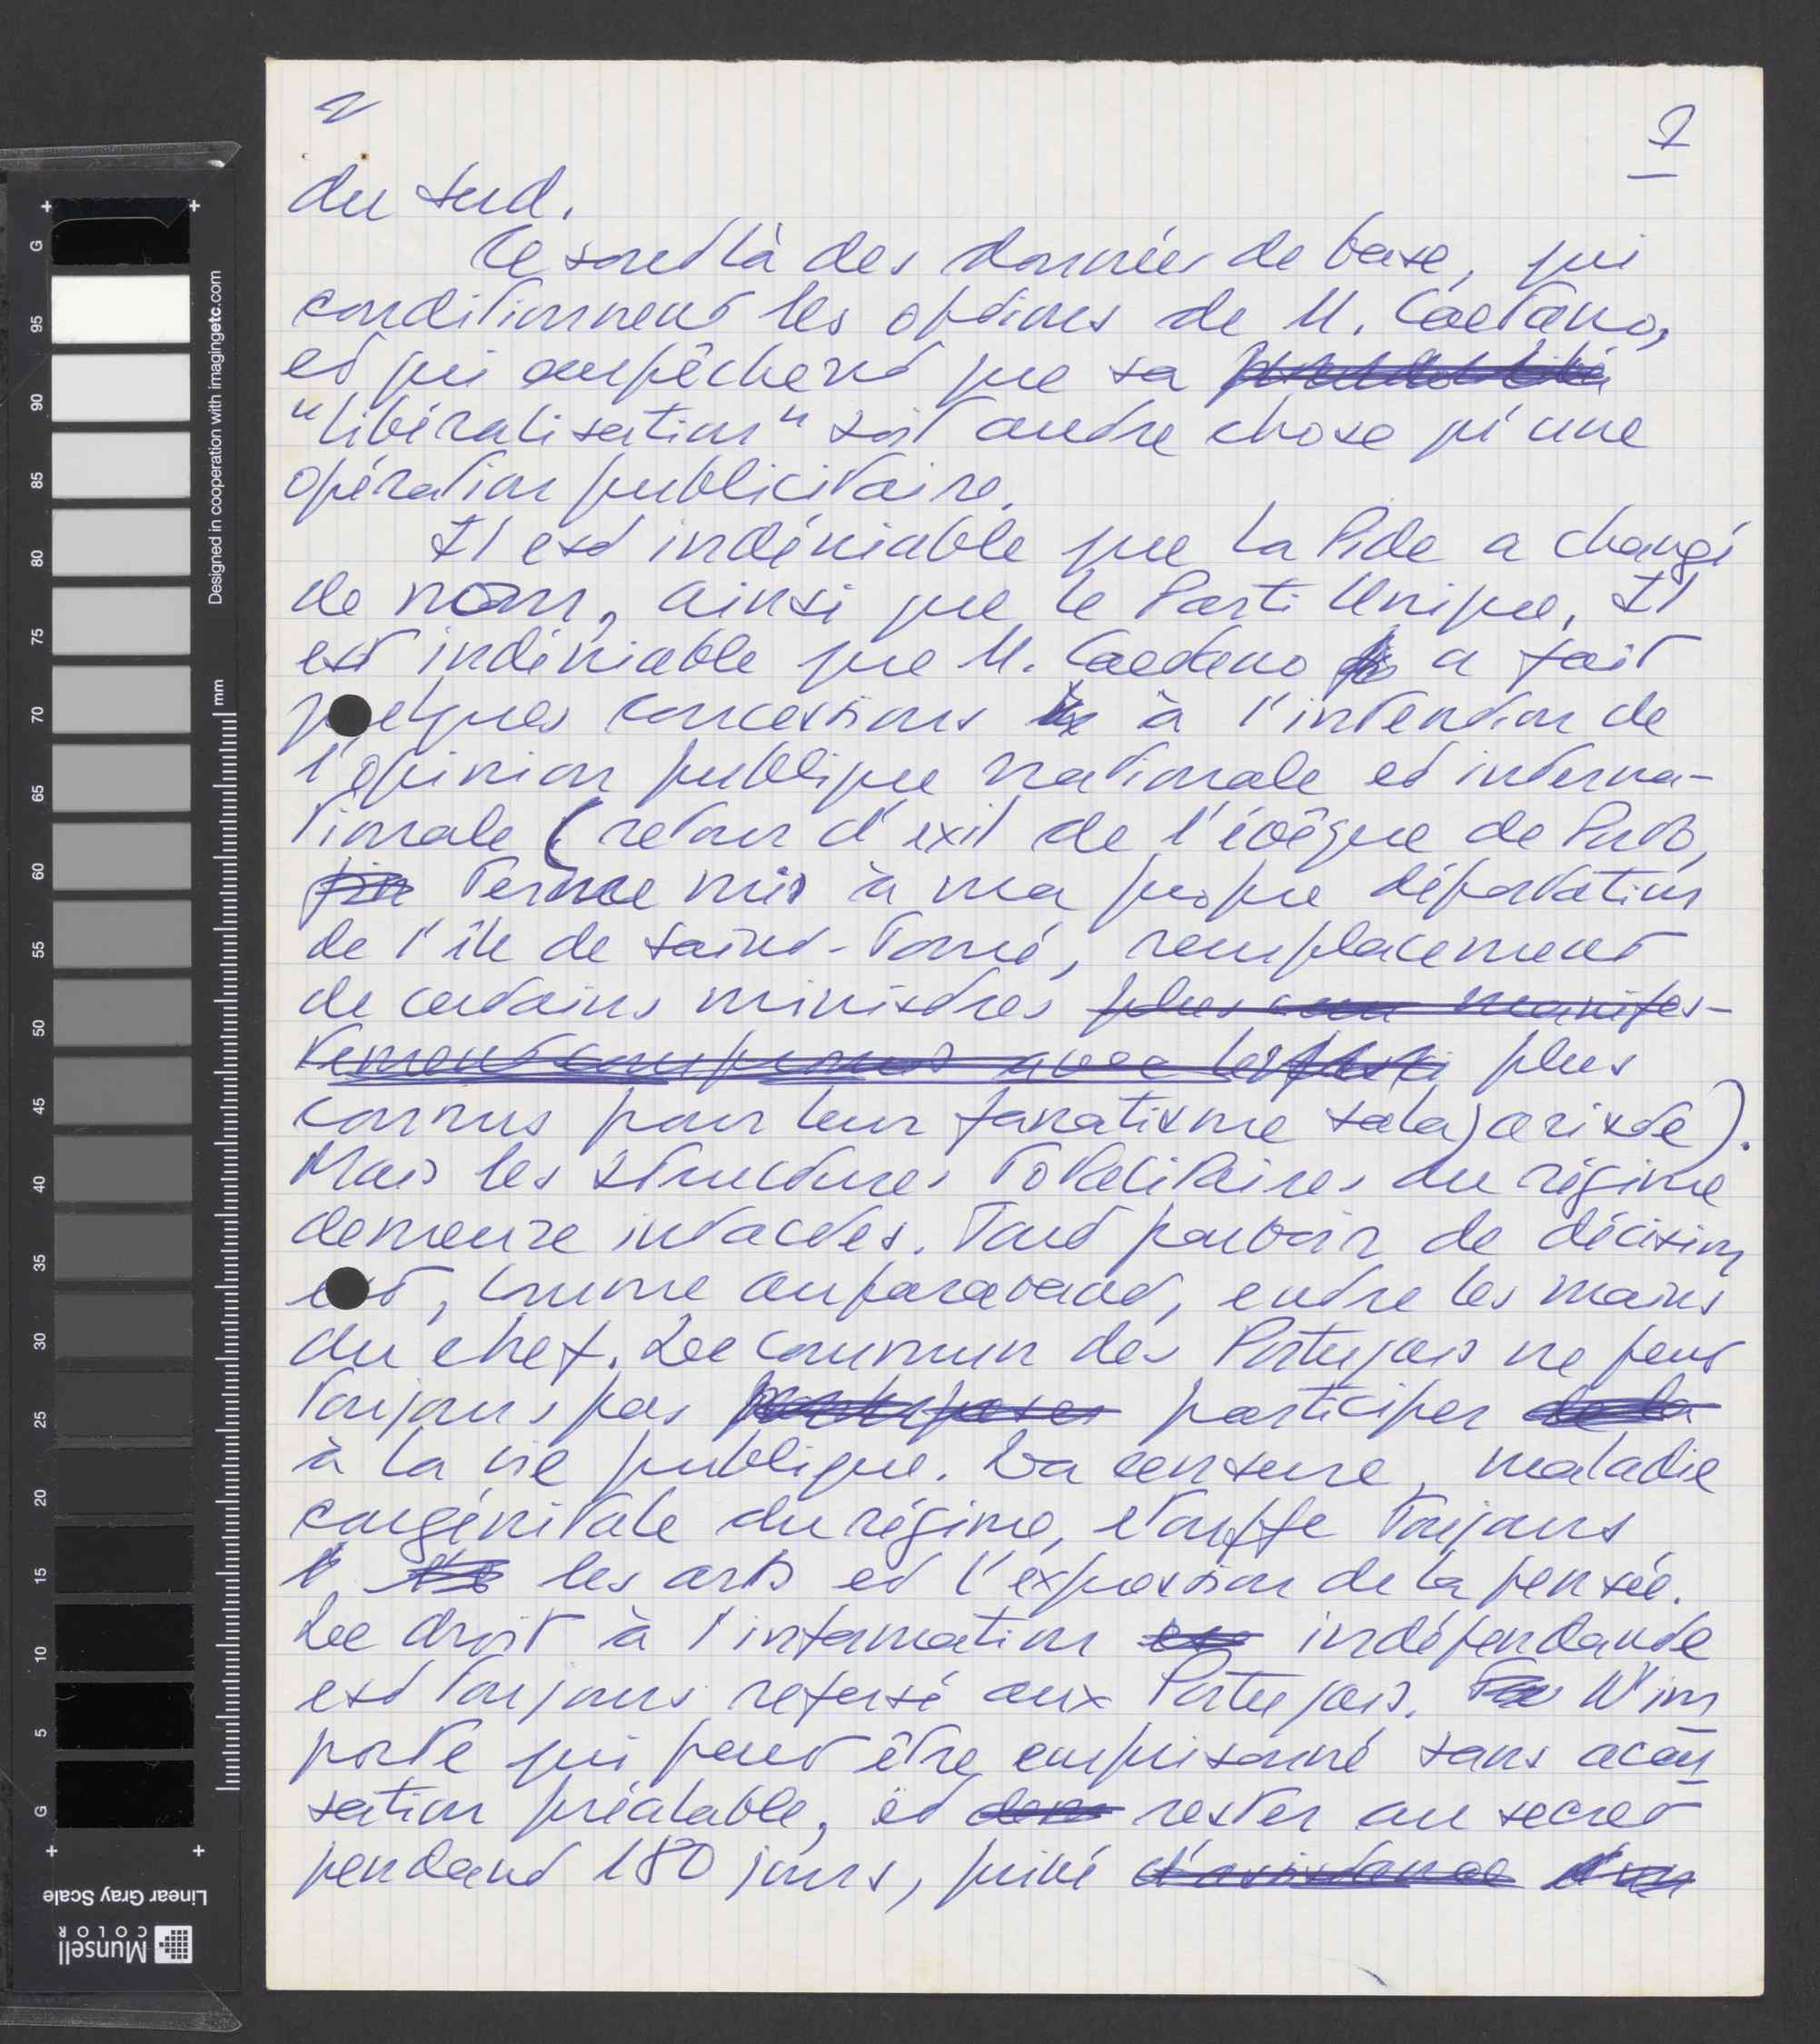 2
7
du sud.
Ce sont là des données de base, qui
conditionnent les options de M. Caetano,
et qui empêchent que sa
"libéralisation" soit autre chose qu'une
opération publicitaire.
Il est indéniable que la Pide a changé
de nom, ainsi que le Parti Unique. Il
est indéniable que M. Caetano a fait
quelques concessions à l'intention de
l'opinion publique nationale et interna-
tionale (retour d'exil de l'évêque de Porto,
fin terme mis à ma propre déportation
de l'île de Saint-Tomé, remplacement
de certains ministres plus manifes-
tement compromis avec les plus
connus pour leur fanatisme salazariste).
Mais les structures totalitaires du régime
demeure intactes. Tout pouvoir de décision
est, comme auparavant, entre les mains
du chef. Le commun des Portugais ne peut
toujours pas participer de la
à la vie publique. La censure, maladie
congénitale du régime, étouffe toujours
l' les arts et l'expression de la pensée.
Le droit à l'information indépendante
est toujours refusé aux Portugais. N'im
porte qui peut être emprisonné sans accu
sation préalable, et rester au secret
pendant 180 jours, privé d'assistance d'un
G
95
90
85
80
75
70
65
60
55
50
45
40
35
30
25
20
15
10
5
G
mm
Designed in cooperation with imagingetc.com
Linear Gray Scale
Munsell
COLOR